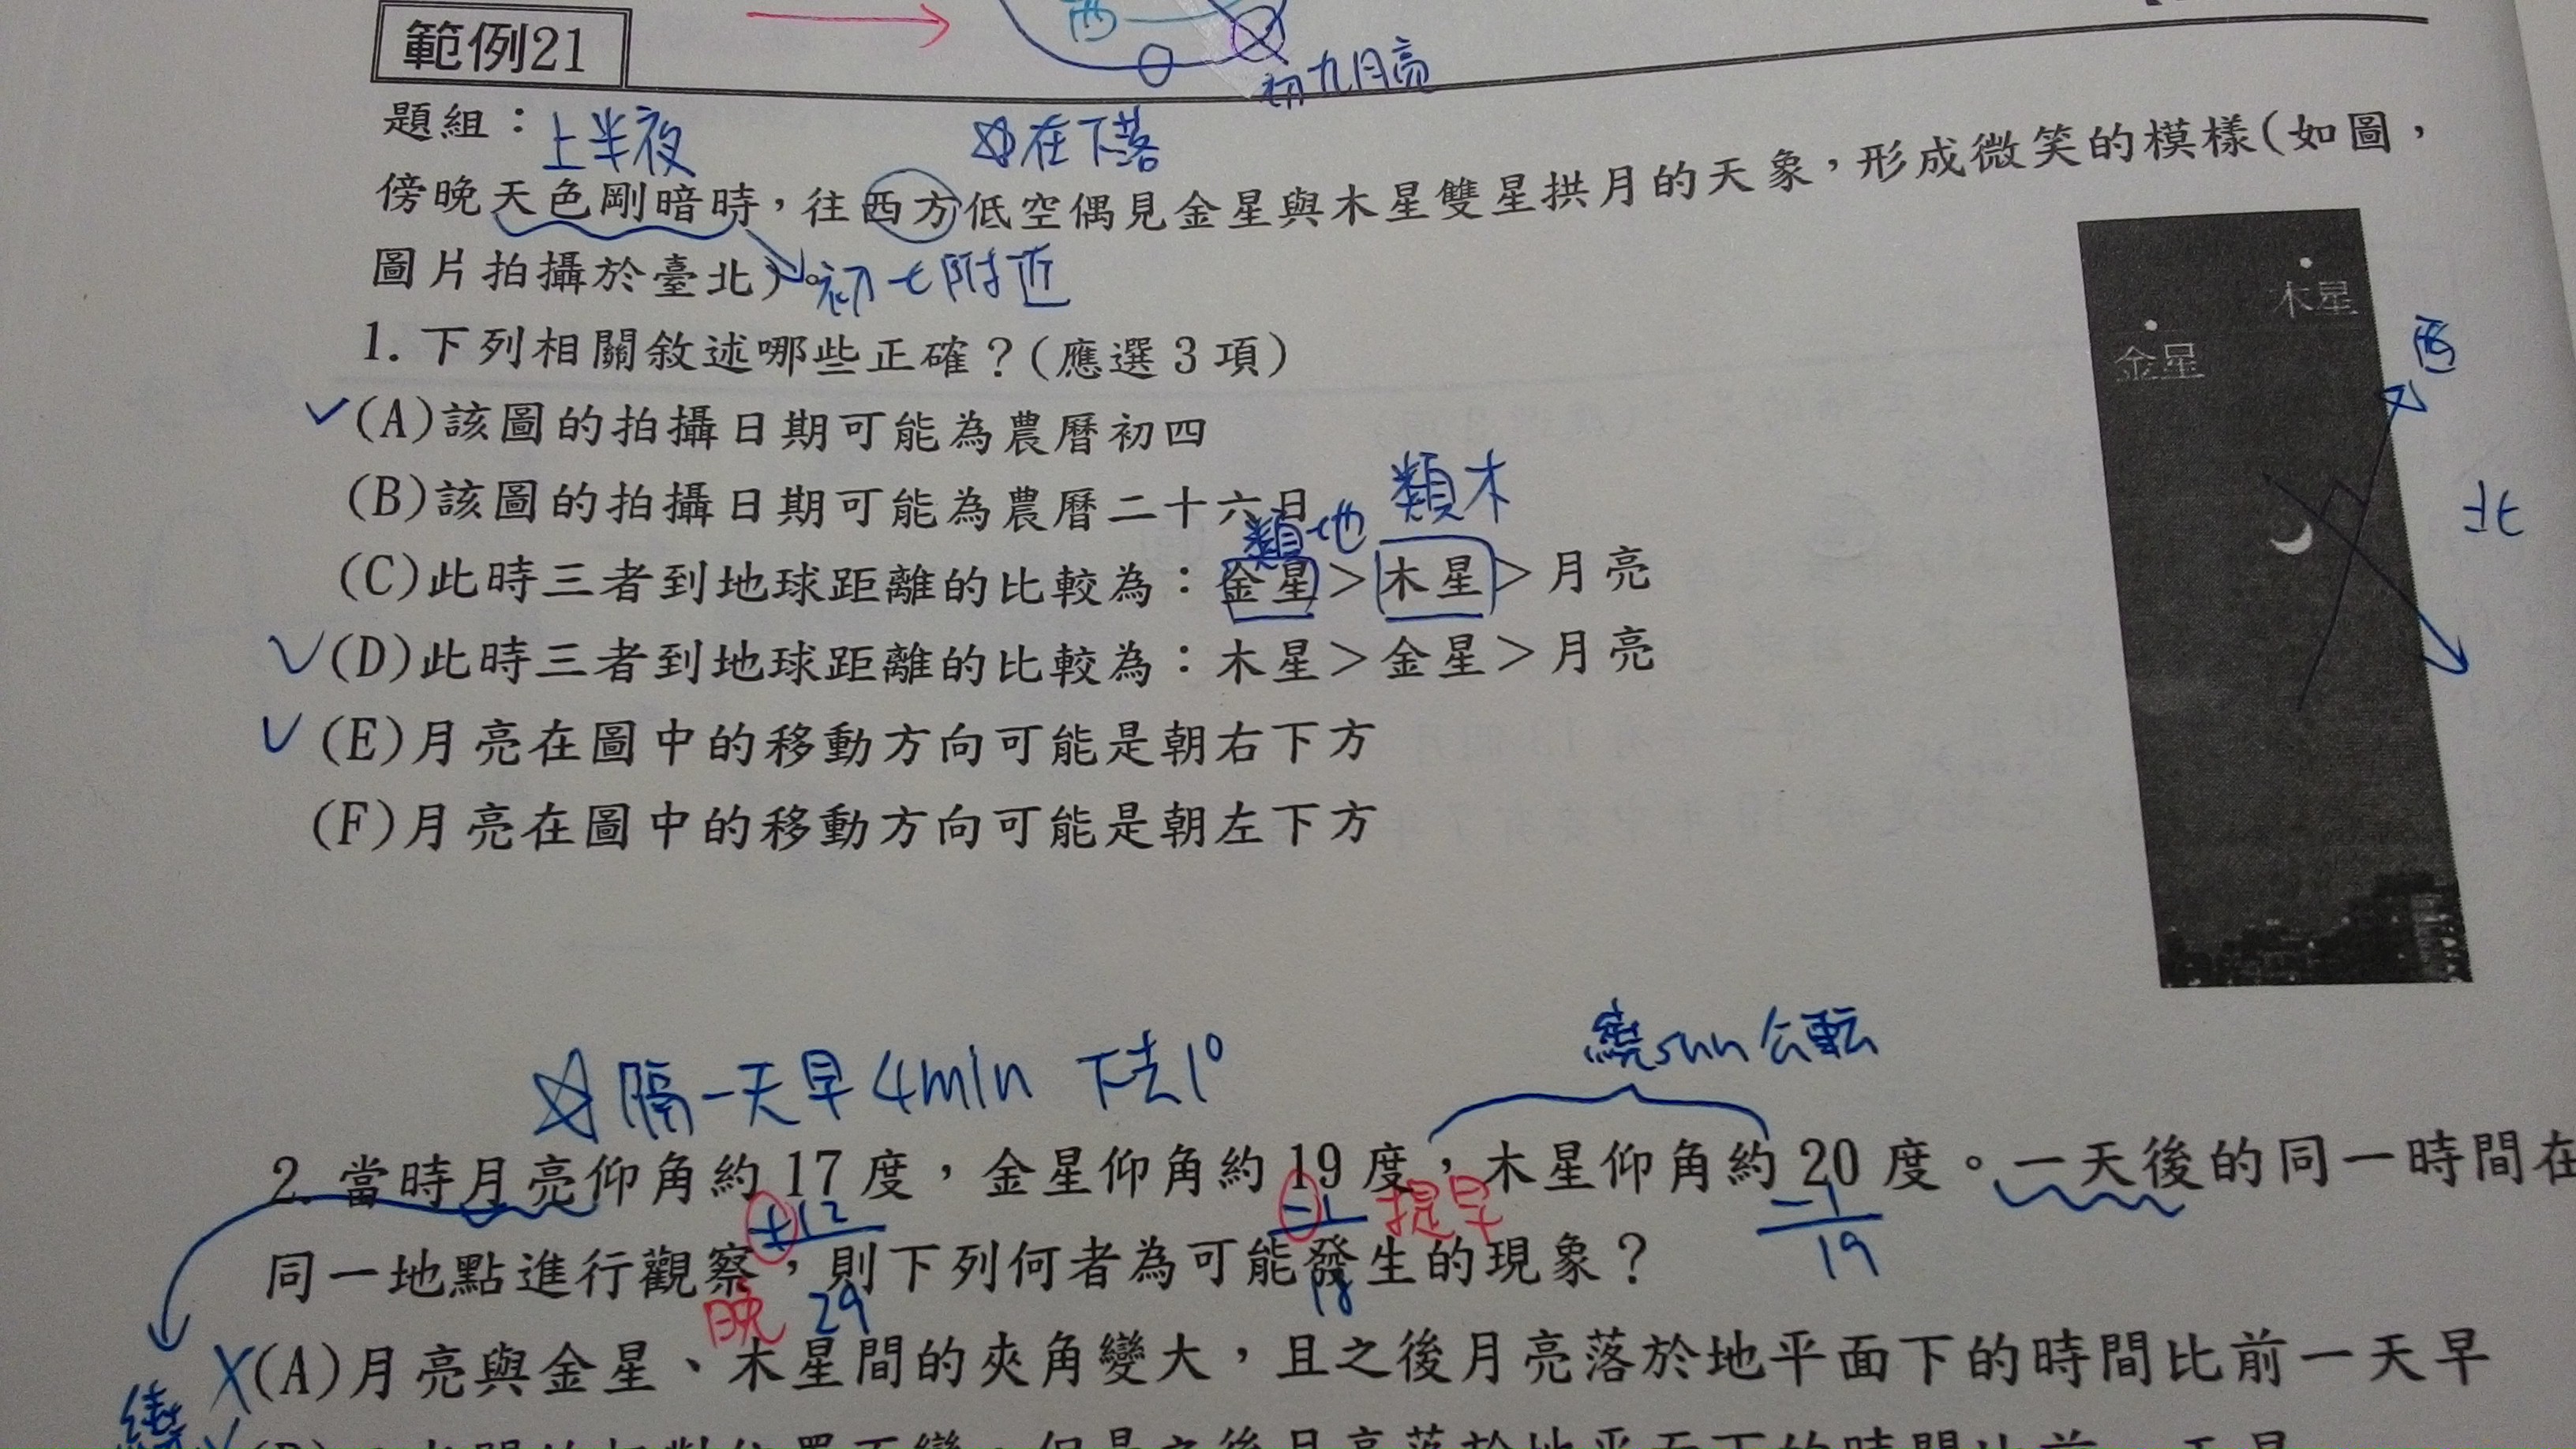 西
初九月亮
範例21
題組：
上半夜
☆在下落
傍晚天色剛暗時，往西方低空偶見金星與木星雙星拱月的天象，形成微笑的模樣(如圖，
圖片拍攝於臺北)。
初七附近
1. 下列相關敘述哪些正確？(應選3項)
(A)該圖的拍攝日期可能為農曆初四
(B)該圖的拍攝日期可能為農曆二十六日
類地
類木
(C)此時三者到地球距離的比較為：金星＞木星＞月亮
(D)此時三者到地球距離的比較為：木星＞金星＞月亮
(E)月亮在圖中的移動方向可能是朝右下方
(F)月亮在圖中的移動方向可能是朝左下方
木星
金星
西
北
☆隔一天早4min 下去1°
繞sun公転
2. 當時月亮仰角約17度，金星仰角約19度，木星仰角約20度。一天後的同一時間在
+12
-1
提早
-1
19
同一地點進行觀察，則下列何者為可能發生的現象？
晚
29
18
X(A)月亮與金星、木星間的夾角變大，且之後月亮落於地平面下的時間比前一天早
繞